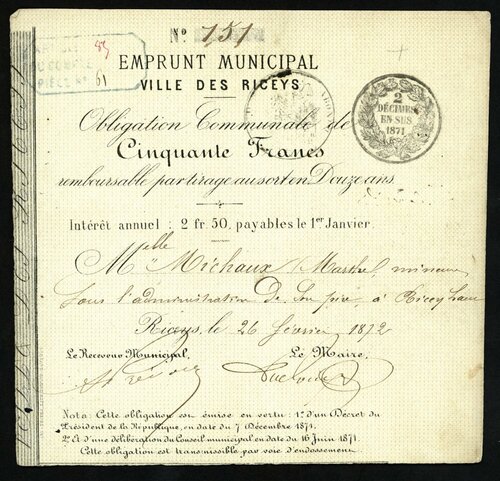 Nº 151
85
61
EMPRUNT MUNICIPAL
VILLE DES RICEYS
2
DÉCIMES
EN SUS
1871
Obligation Communale de
Cinquante Francs
remboursable par tirage au sort en Douze ans.
Intérêt annuel : 2 fr 50, payables le 1er Janvier.
Melle Michaux (Marthe), mineure
sous l'administration De son père, à Ricey haut
Riceys, le 26 février 1872
Le Receveur Municipal, Le Maire,
Nota: Cette obligation est émise en vertu : 1º d'un Décret du
Président de la République, en date du 7 Décembre 1871.
2º Et d'une délibération du Conseil municipal en date du 16 Juin 1871.
Cette obligation est transmissible par voie d'endossement.